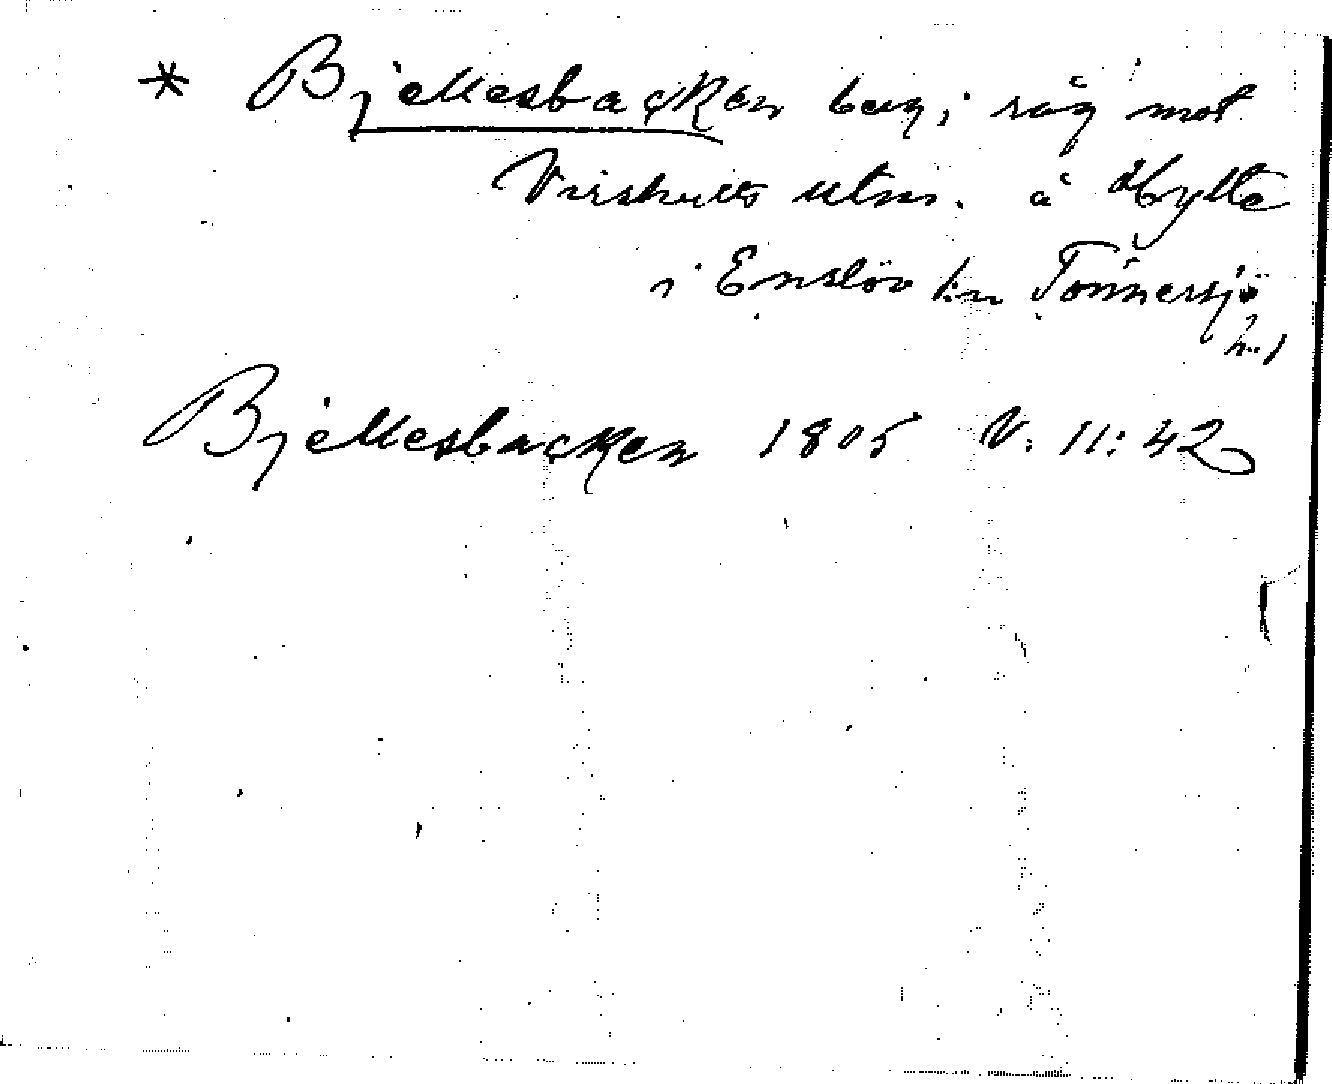 * Bjellesbacken belg. i råg mot
Virshults utm. å Hylte
i Enslöv sn Tönnersjö
hd
Bjellesbacken 1805 V. 11:42